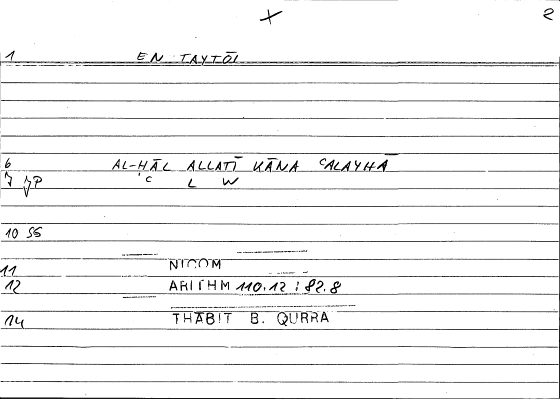 + 2
1 EN TAYTŌI
6 AL-ḤĀL ALLATĪ KĀNA ʿALAYHĀ
C L W
10 SS
11 NICOM
12 ARITHM 110.12 ; 82.8
14 THĀBIT B. QURRA